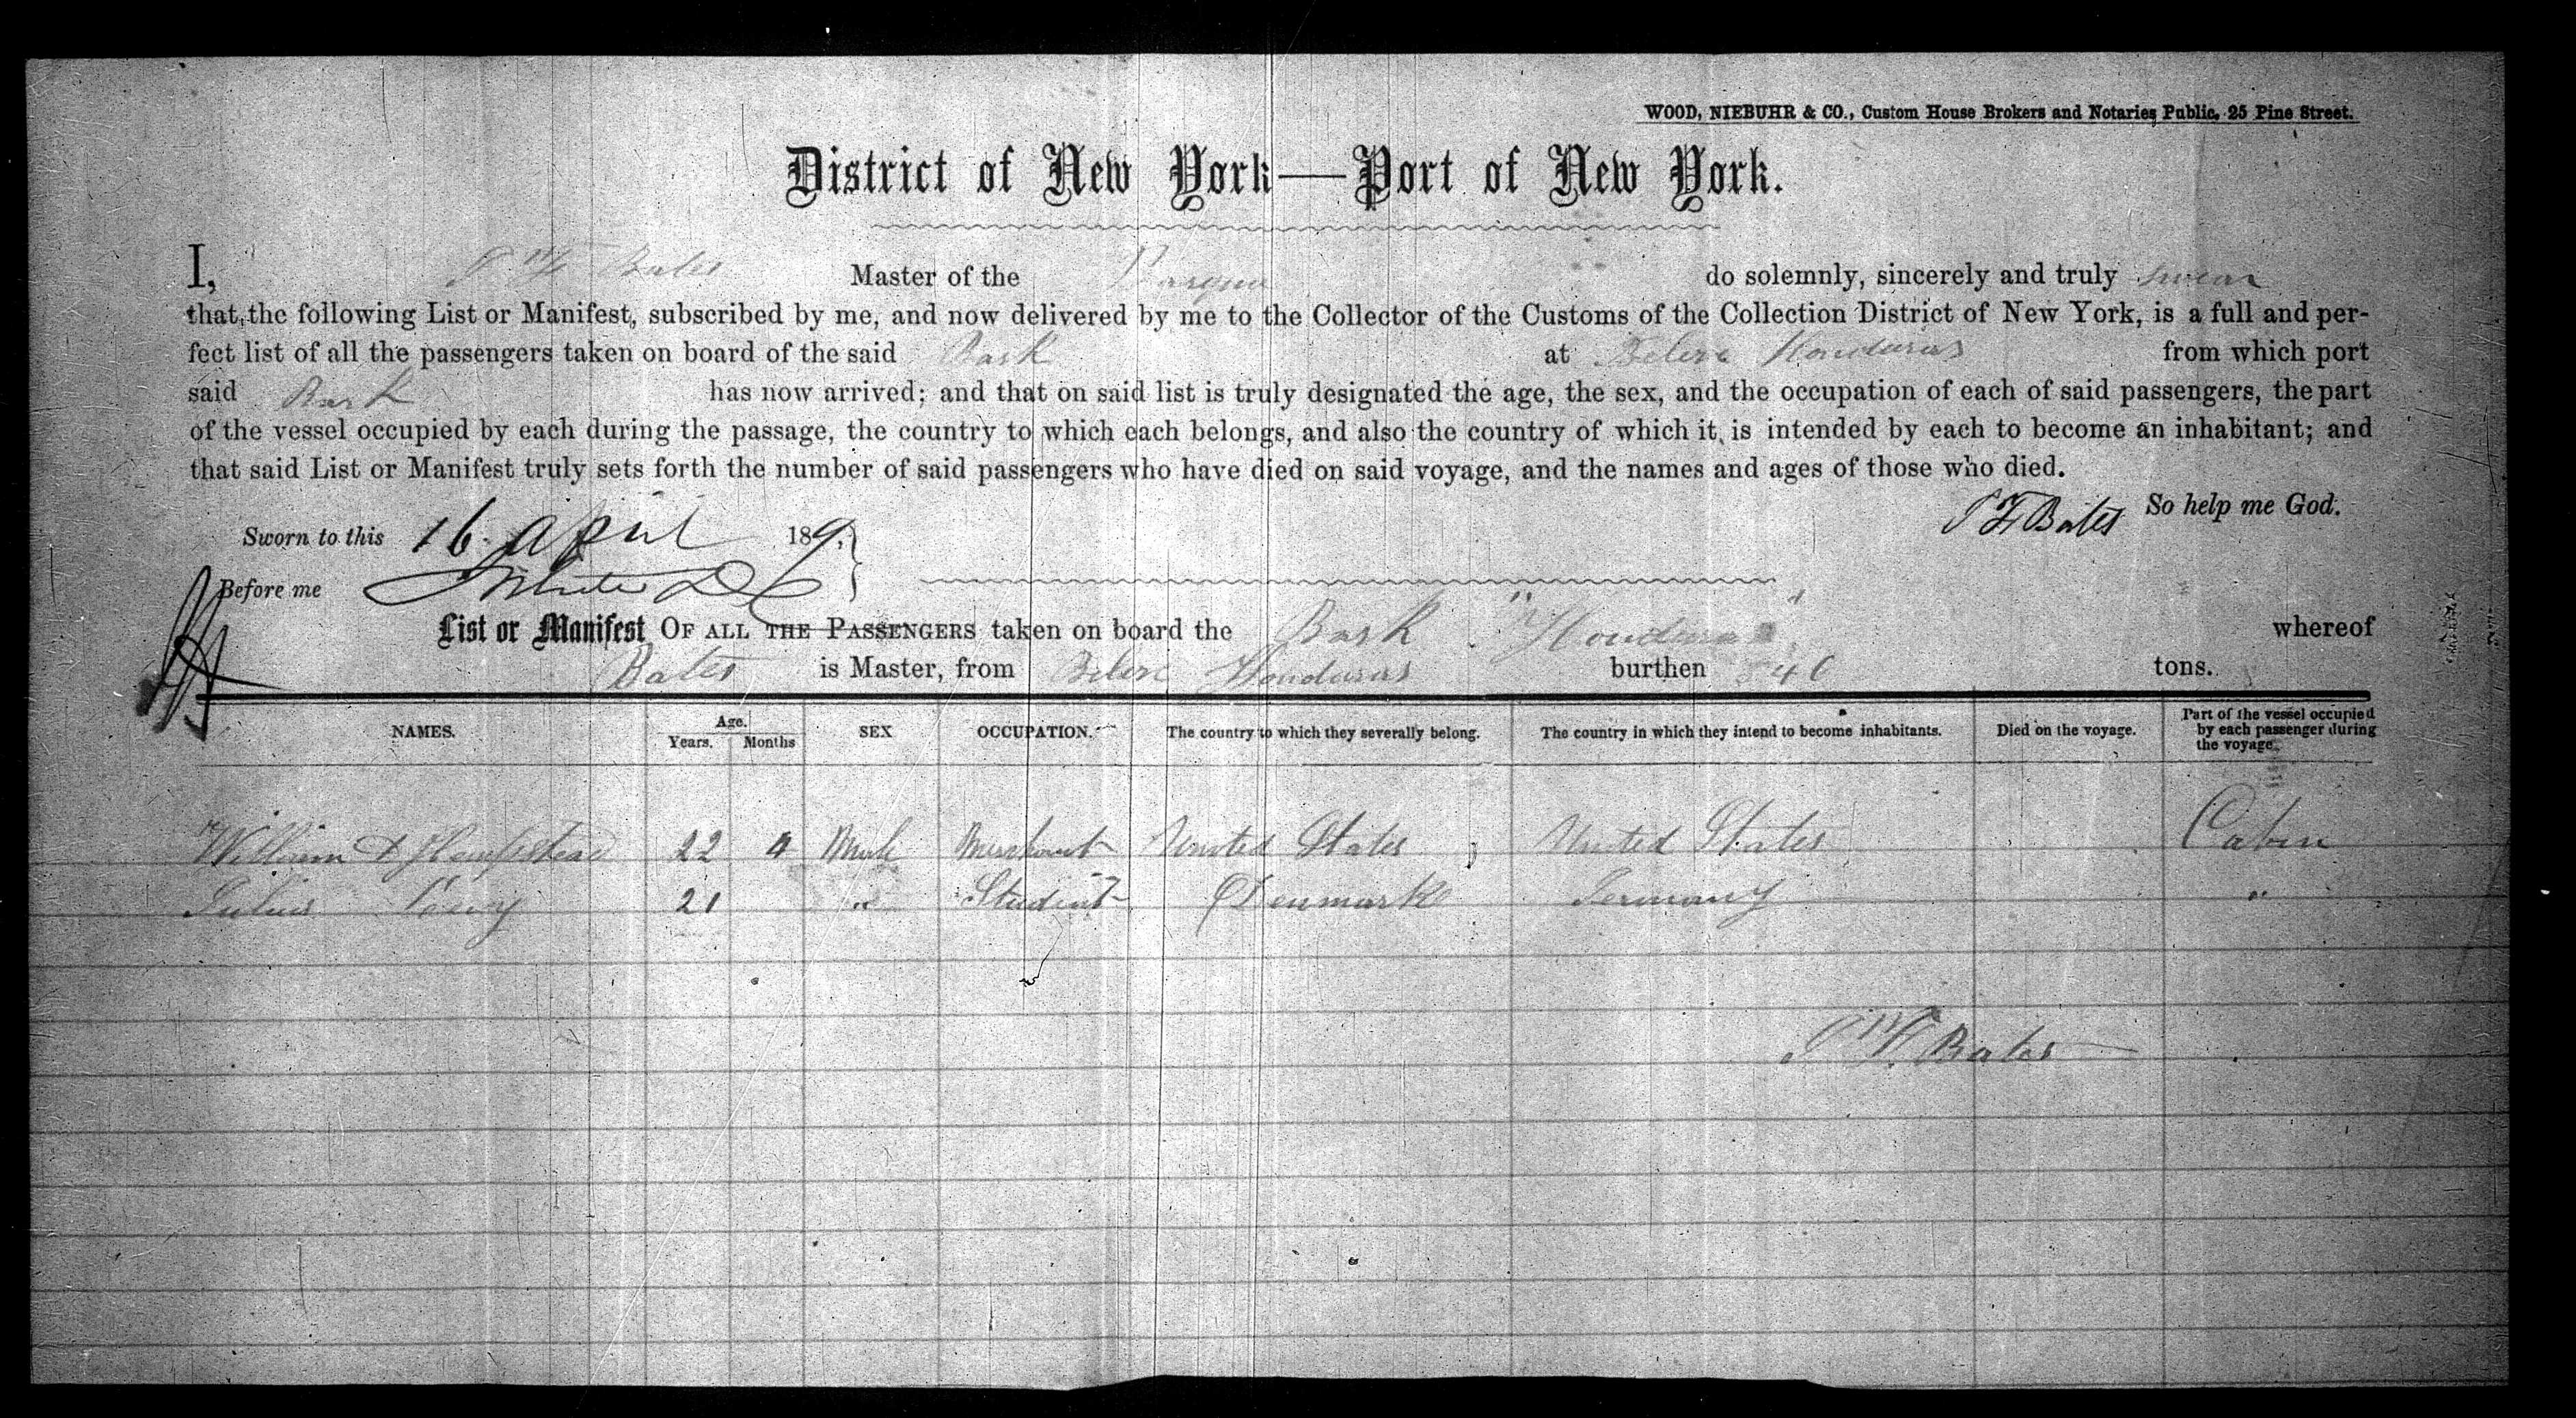 WOOD, NIEBUHR & CO., Custom House Brokers and Notaries Public, 25 Pine Street.
District of New York—Port of New York.
I, Bates Master of the do solemnly, sincerely and truly swear
that the following List or Manifest, subscribed by me, and now delivered by me to the Collector of the Customs of the Collection District of New York, is a full and per-
fect list of all the passengers taken on board of the said Bark at Belize Honduras from which port
said Bark has now arrived; and that on said list is truly designated the age, the sex, and the occupation of each of said passengers, the part
of the vessel occupied by each during the passage, the country to which each belongs, and also the country of which it is intended by each to become an inhabitant; and
that said List or Manifest truly sets forth the number of said passengers who have died on said voyage, and the names and ages of those who died.
Bates So help me God.
Sworn to this 16 April 189
Before me
List or Manifest OF ALL THE PASSENGERS taken on board the Bark "Honduras" whereof
Bates is Master, from Belize Honduras burthen tons.
NAMES. Age. Years. Months SEX OCCUPATION. The country to which they severally belong. The country in which they intend to become inhabitants. Died on the voyage. Part of the vessel occupied by each passenger during the voyage.
William A Hempstead 22 4 Male Merchant United States United States Cabin
Julius 21 " Student Denmark Germany "
Bates